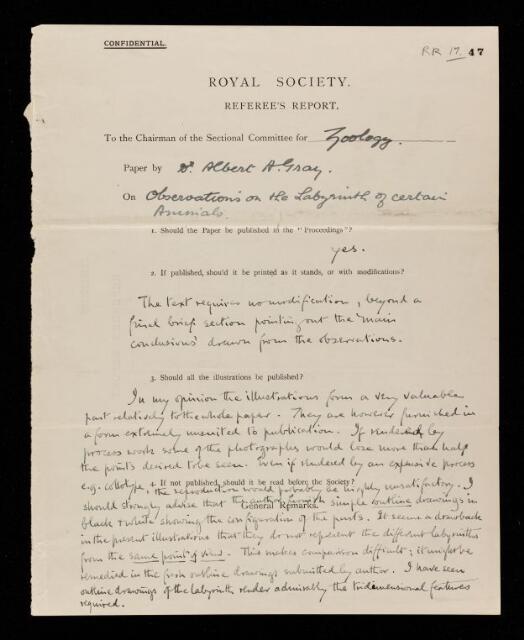 CONFIDENTIAL.
RR 17. 47
ROYAL SOCIETY.
REFEREE'S REPORT.
To the Chairman of the Sectional Committee for Zoology.
Paper by Dr. Albert A. Gray.
On Observations on the Labyrinth of certain
Animals.
1. Should the Paper be published in the "Proceedings"?
yes.
2. If published, should it be printed as it stands, or with modifications?
The text requires no modification, beyond a
final brief section pointing out the 'main
conclusions' drawn from the observations.
3. Should all the illustrations be published?
In my opinion the illustrations form a very valuable
part relatively to the whole paper. They are however furnished in
a form extremely unsuited to publication. If rendered by
process work some of the photographs would lose more than half
the points desired to be seen. Even if rendered by an expensive process
e.g. collotype,
4. If not published, should it be read before the Society?
the reproduction would probably be highly unsatisfactory. I
should strongly advise that the author furnish simple outline drawings in
General Remarks.
black & white showing the configuration of the parts. It seems a drawback
in the present illustrations that they do not represent the different labyrinths
from the same point of view. This makes comparison difficult; it might be
remedied in the fresh outline drawings submitted by author. I have seen
outline drawings of the labyrinth render admirably the tridimensional features
required.